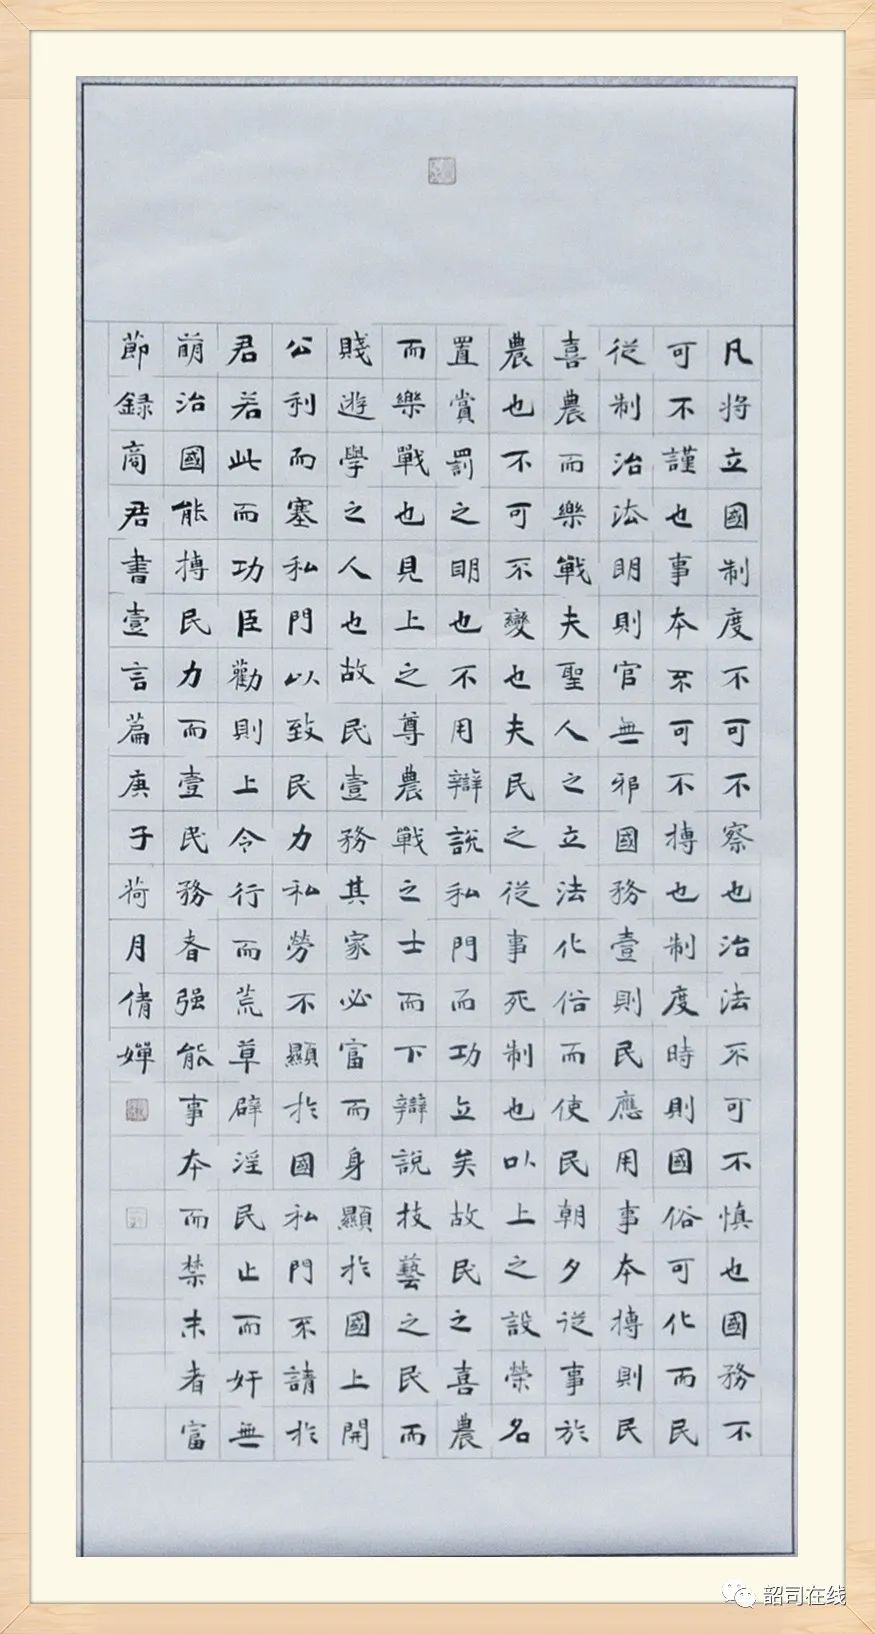 凡将立國制度不可不察也治法不可不慎也國務不
可不謹也事本不可不摶也制度時則國俗可化而民
從制治法明則官無邪國務壹則民應用事本摶則民
喜農而樂戰夫聖人之立法化俗而使民朝夕從事於
農也不可不變也夫民之從事死制也以上之設榮名
置賞罰之明也不用辯說私門而功立矣故民之喜農
而樂戰也見上之尊農戰之士而下辯說技藝之民而
賤遊學之人也故民壹務其家必富而身顯於國上開
公利而塞私門以致民力私勞不顯於國私門不請於
君若此而功臣勸則上令行而荒草辟淫民止而奸無
萌治國能摶民力而壹民務者强能事本而禁末者富
節録商君書壹言篇庚子荷月倩嬋
韶司在线